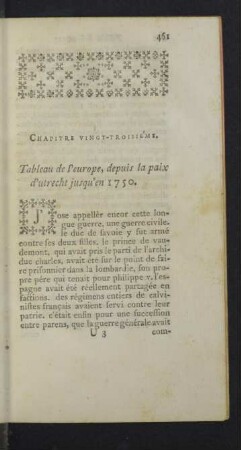 461
CHAPITRE VINGT-TROISIÉME.
Tableau de l'europe, depuis la paix
d'utrecht jusqu'en 1750.
J'ose appeller encor cette lon-
gue guerre, une guerre civile.
le duc de savoie y fut armé
contre ses deux filles. le prince de vau-
demont, qui avait pris le parti de l'archi-
duc charles, avait été sur le point de fai-
re prisonnier dans la lombardie, son pro-
pre père qui tenait pour philippe v. l'es-
pagne avait été réellement partagée en
factions. des régimens entiers de calvi-
nistes français avaient servi contre leur
patrie. c'était enfin pour une succession
entre parens, que la guerre générale avait
U 3 com-